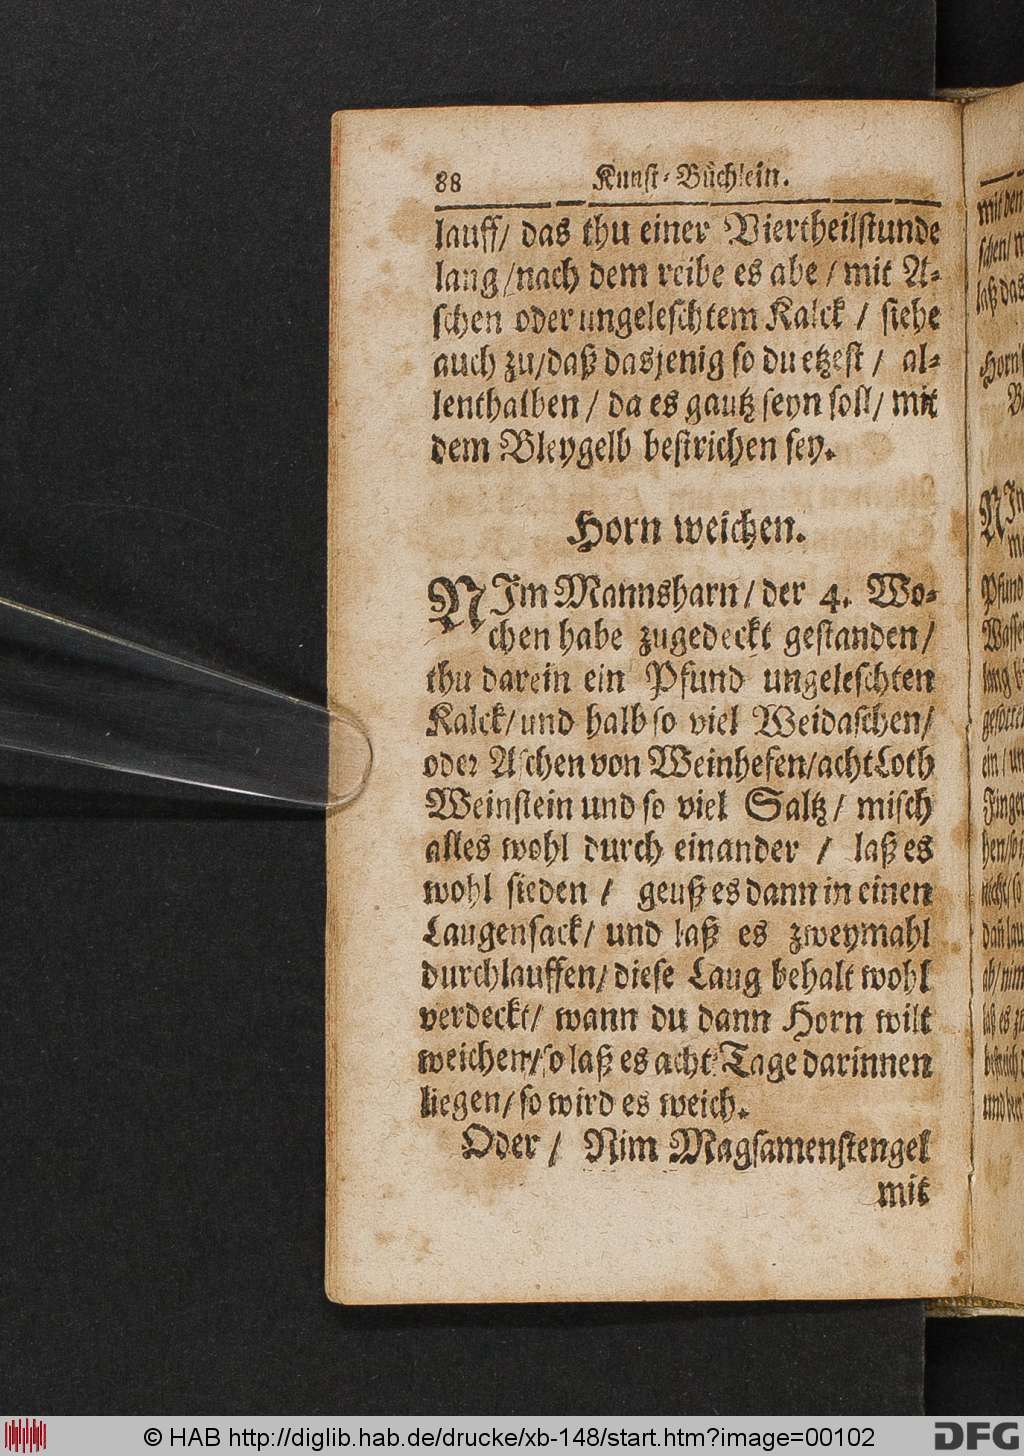 88 Kunst-Büchlein.
lauff/ das thu einer Viertheilstunde
lang/nach dem reibe es abe/ mit A-
schen oder ungeleschtem Kalck / siehe
auch zu/daß dasjenig so du etzest / al-
lenthalben / da es gantz seyn soll/ mit
dem Bleygelb bestrichen sey.
Horn weichen.
NIm Mannsharn/der 4. Wo-
chen habe zugedeckt gestanden/
thu darein ein Pfund ungeleschten
Kalck/und halb so viel Weidaschen/
oder Aschen von Weinhefen/acht Loth
Weinstein und so viel Saltz/ misch
alles wohl durch einander / laß es
wohl sieden / geuß es dann in einen
Laugensack/ und laß es zweymahl
durchlauffen/ diese Laug behalt wohl
verdeckt/ wann du dann Horn wilt
weichen/so laß es acht Tage darinnen
liegen/ so wird es weich.
Oder / Nim Magsamenstengel
mit
© HAB http://diglib.hab.de/drucke/xb-148/start.htm?image=00102
DFG